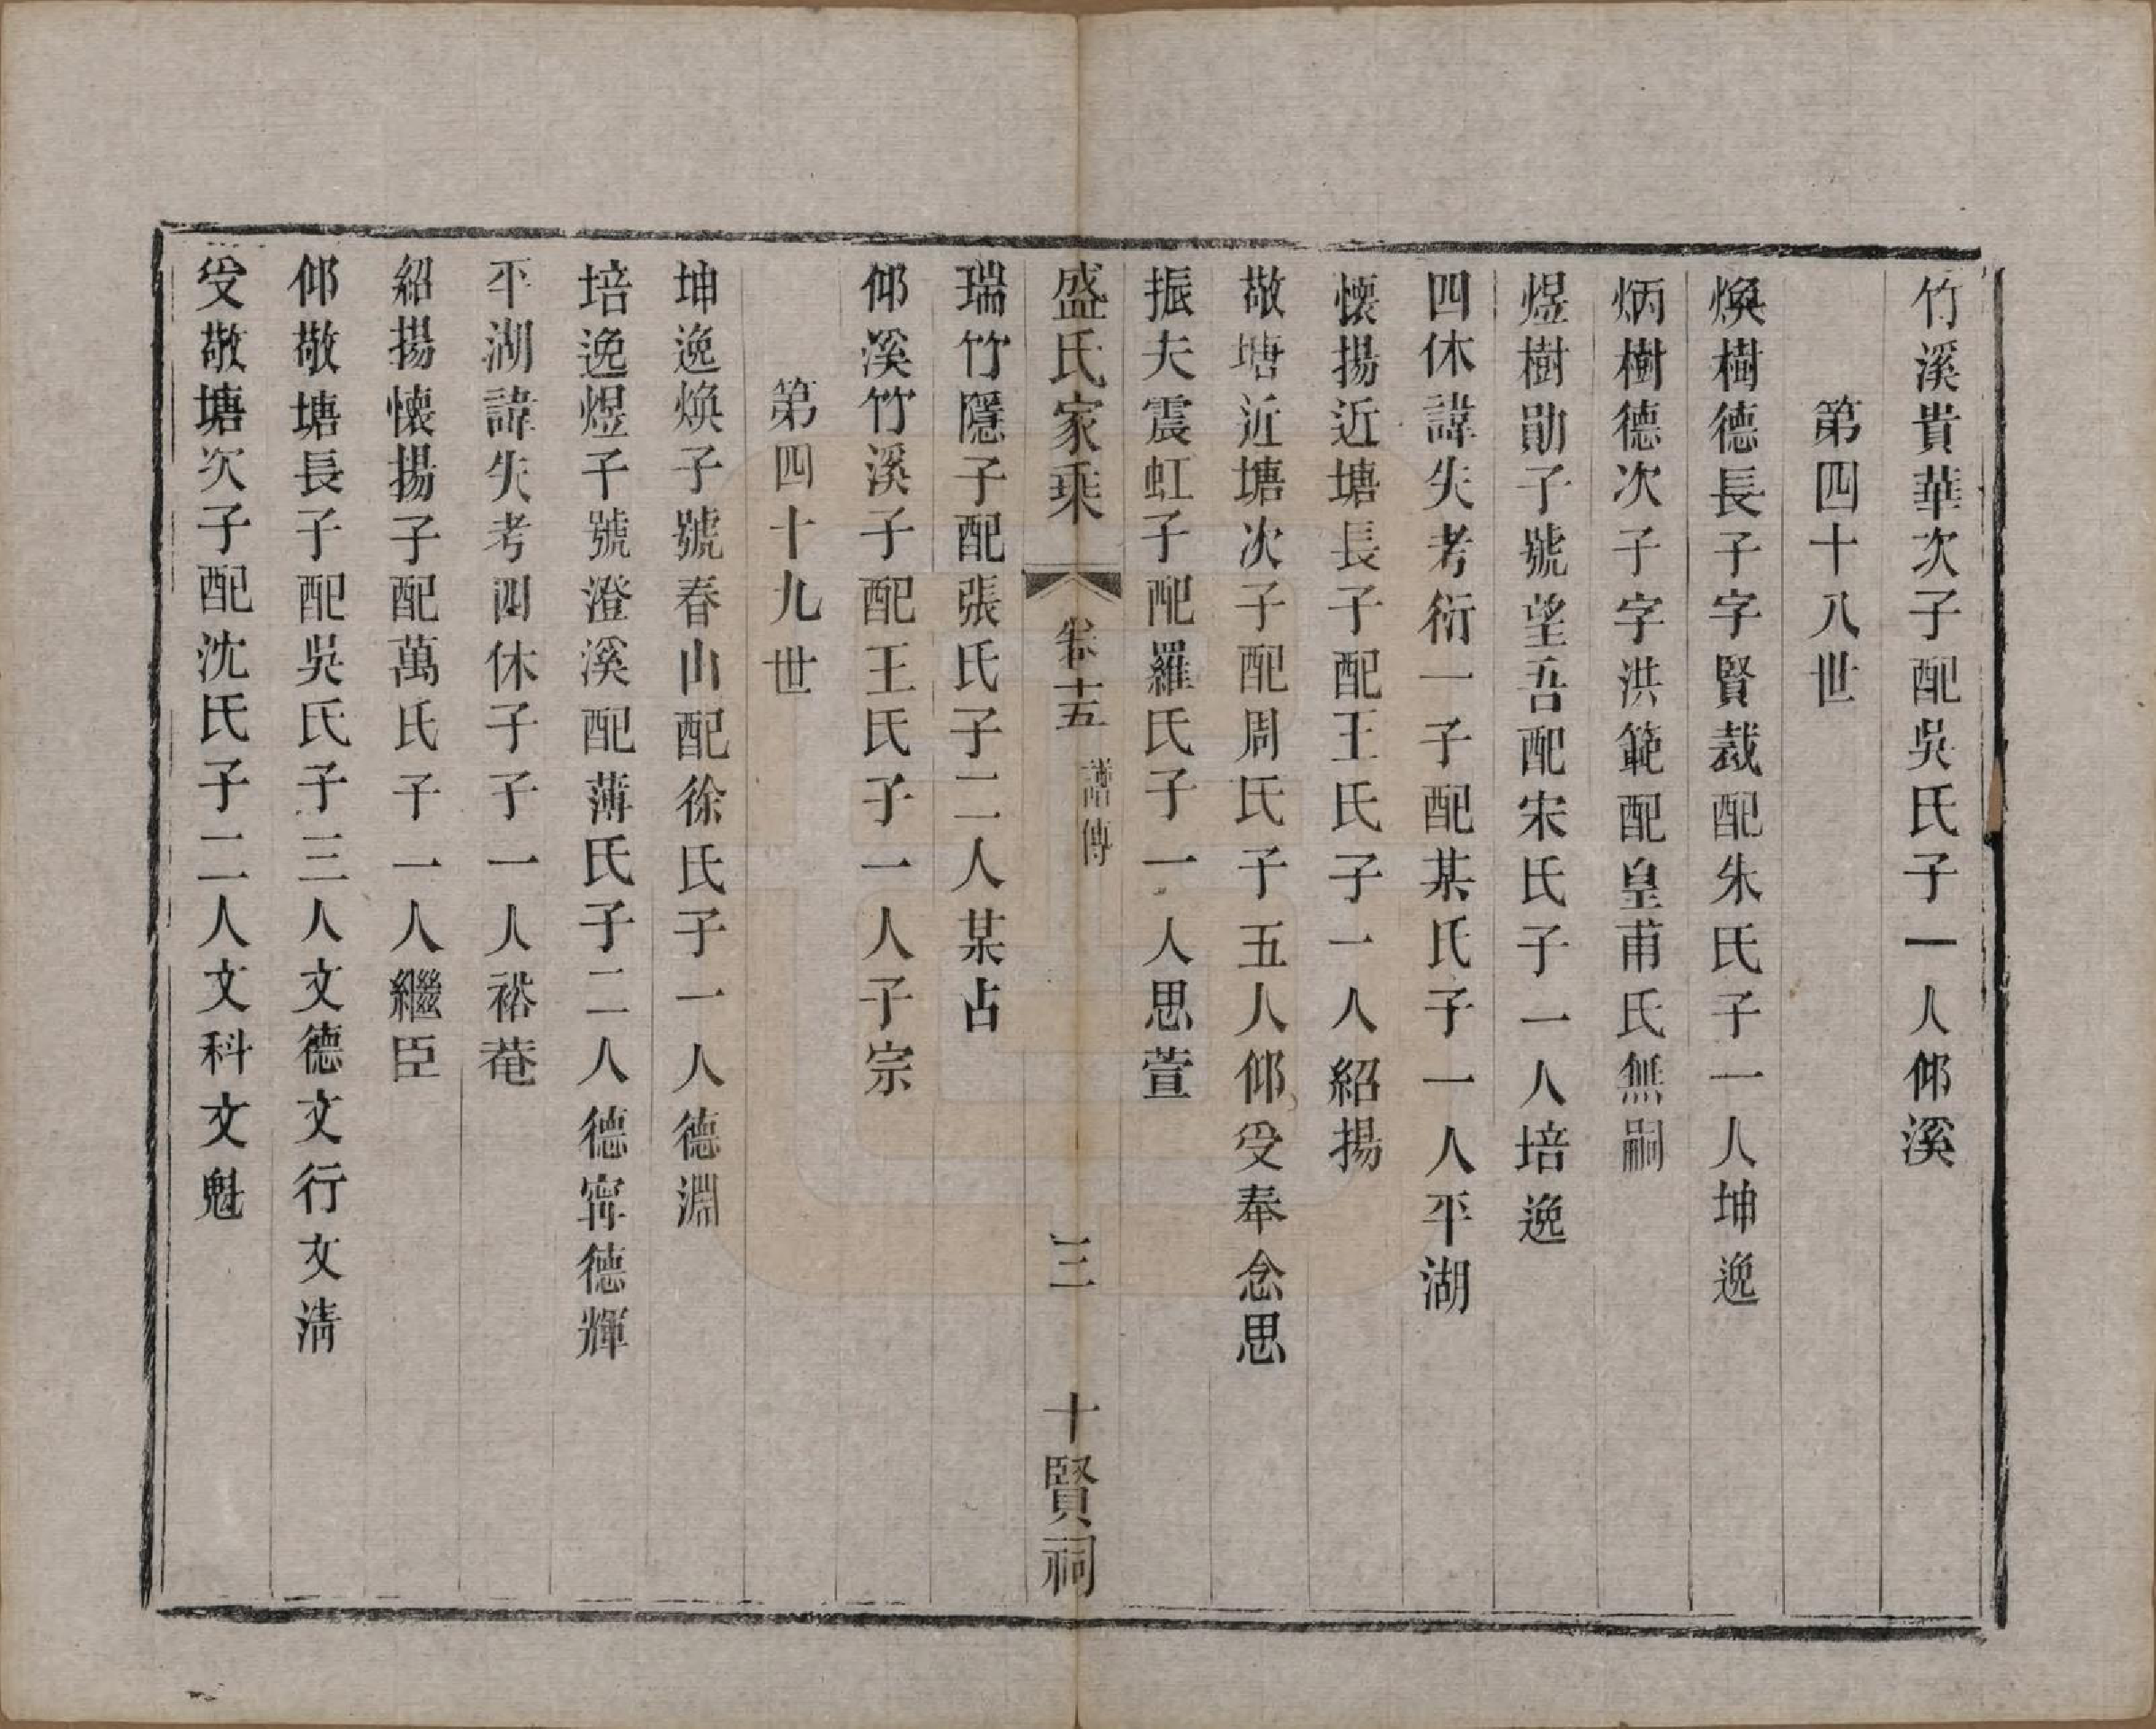 竹溪貴華次子配吳氏子一人仰溪
第四十八世
煥樹德長子字賢裁配朱氏子一人坤逸
炳樹德次子字洪範配皇甫氏無嗣
煜樹勛子號望吾配宋氏子一人培逸
四休諱失考衍一子配某氏子一人平湖
懷揚近塘長子配王氏子一人紹揚
敬塘近塘次子配周氏子五人仰受奉念思
振夫震虹子配羅氏子一人思萱
盛氏家乘 卷十五 譜傳 三 十賢祠
瑞竹隱子配張氏子二人某占
仰溪竹溪子配王氏子一人子宗
第四十九世
坤逸煥子號春山配徐氏子一人德淵
培逸煜子號澄溪配薄氏子二人德甯德輝
平湖諱失考四休子子一人裕菴
紹揚懷揚子配萬氏子一人繼臣
仰敬塘長子配吳氏子三人文德文行文清
受敬塘次子配沈氏子二人文科文魁